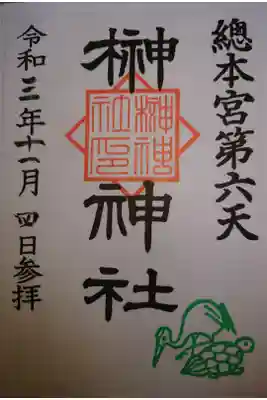 總本宮第六天
榊神社
榊神
社印
令和三年十一月四日参拝